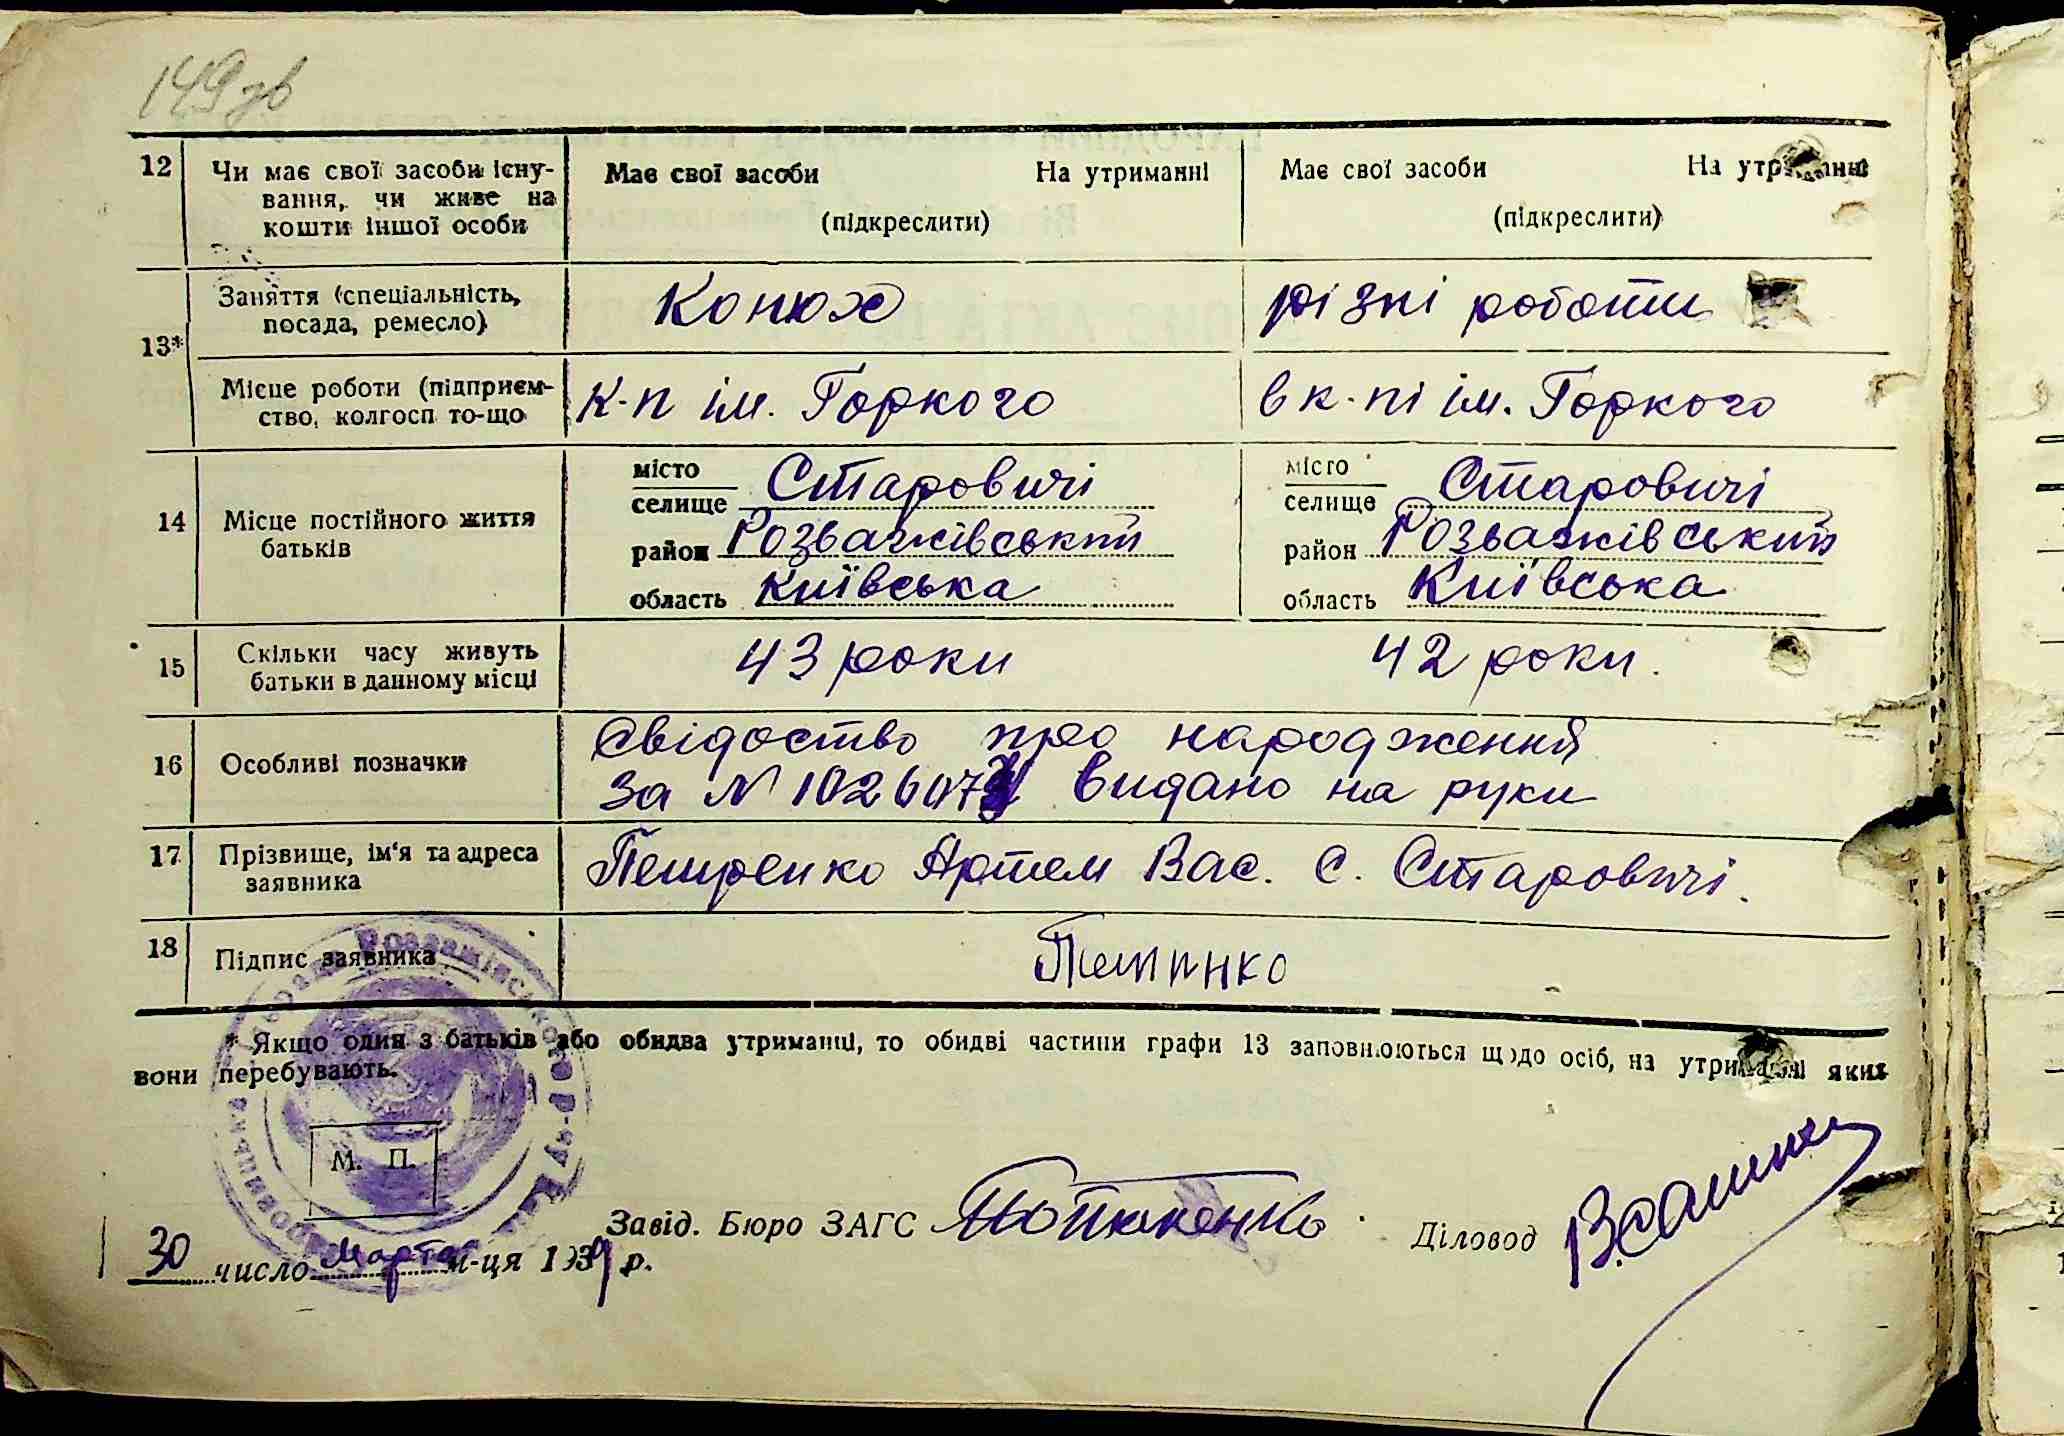 149 зв
12 Чи має свої засоби існу- Має свої засоби На утриманні Має свої засоби На утриманні
вання, чи живе на
кошти іншої особи (підкреслити) (підкреслити)
13* Заняття (спеціальність, посада, ремесло) Конюх різні роботи
Місце роботи (підприєм- к-п ім. Горкого в к-пі ім. Горкого
ство, колгосп то-що
14 Місце постійного життя батьків
місто селище Старовичі місто селище Старовичі
район Розважівський район Розважівський
область Київська область Київська
15 Скільки часу живуть 43 роки 42 роки.
батьки в данному місці
16 Особливі позначки Свідоство про народження
за № видано на руки
17 Прізвище, ім'я та адреса Петренко Артем Вас. С. Старовичі.
заявника
18 Підпис заявника
* Якщо один з батьків або обидва утриманці, то обидві частини графи 13 заповнюються щодо осіб, на утриманні яких
вони перебувають.
М. П.
Завід. Бюро ЗАГС Діловод
30 число Марта м-ця 1939 р.